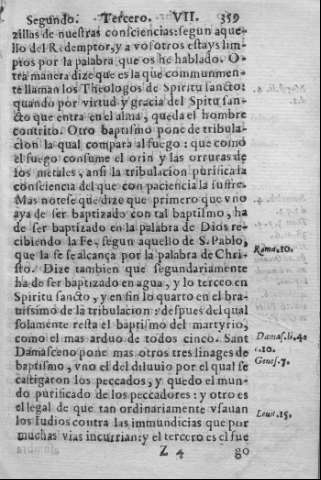 Segundo. Tercero. VII. 359
zillas de nuestras consciencias: segun aque-
llo del Redemptor, y a vosotros estays lim-
pios por la palabra que os he hablado. O-
tra manera dize que es la que communmen-
te llaman los Theologos de Spiritu sancto:
quando por virtud y gracia del Spitu san-
cto que entra en el alma, queda el hombre
contrito. Otro baptismo pone de tribula-
cion la qual compara al fuego: que como
el fuego consume el orin y las orruras de
los metales, ansi la tribulacion purifica la
consciencia del que con paciencia la suffre.
Mas notese que dize que primero que vno
aya de ser baptizado con tal baptismo, ha
de ser baptizado en la palabra de Dios re-
cibiendo la Fe, segun aquello de S. Pablo,
Roma.10.
que la fe se alcança por la palabra de Chri-
sto. Dize tambien que segundariamente
ha de ser baptizado en agua, y lo tercero en
Spiritu sancto, y en fin lo quarto en el bra-
uissimo de la tribulacion: despues del qual
solamente resta el baptismo del martyrio,
como el mas arduo de todos cinco. Sant
Damas.li.4.
Damasceno pone mas otros tres linages de
c.10.
baptismo, vno el del diluuio por el qual se
Genes.7.
castigaron los peccados, y quedo el mun-
do purificado de los peccadores: y otro es
el legal de que tan ordinariamente vsauan
los Iudios contra las immundicias que por
Leuit.15.
muchas vias incurrian: y el tercero es el fue
Z 4 go